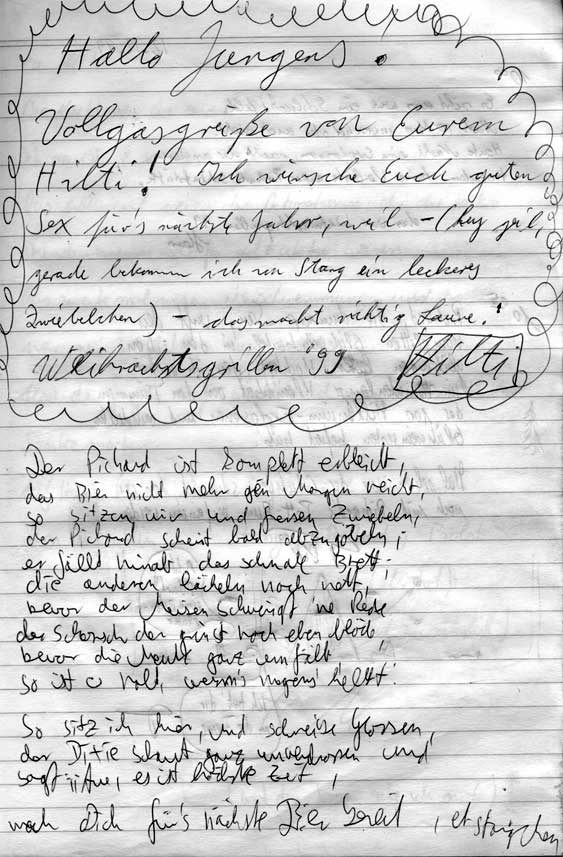 Hallo Jungens!
Vollgasgrüße von Eurem
Hilti! Ich wünsche Euch guten
Sex für's nächste Jahr, weil - (hey geil,
gerade bekomm ich von Stang ein leckeres
Zwiebelchen) - das macht richtig Laune!
Weihnachtsgrillen '99 Hilti
Der Pichard ist komplett erbleicht,
das Bier nicht mehr gen Morgen reicht,
so sitzen wir und fressen Zwiebeln,
der Pichard scheint bald abzugöbeln;
er fällt hinab das schmale Brett;
die anderen lächeln noch nett,
bevor der Meisen schwingt 'ne Rede
der Schorsch der grinst noch eben blöde,
bevor die Meute ganz umfällt
so ist's halt, wenn's morgens hellt!
So sitz ich hier, und schreibe Glossen,
der Ditie schaut ganz unverdrossen und
sagt, es ist höchste Zeit,
mach dich für's nächste Bier bereit,